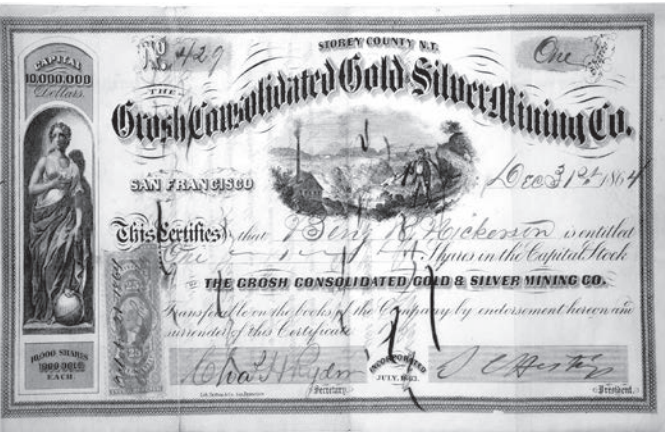 CAPITAL
10,000,000
Dollars.
No. 429
STOREY COUNTY N.T.
One
THE
Grosh Consolidated Gold & Silver Mining Co.
SAN FRANCISCO
Dec 31st 1864
This Certifies that Benj R. Nickerson is entitled
One Shares in the Capital Stock
OF THE GROSH CONSOLIDATED GOLD & SILVER MINING CO.
Transferable on the books of the Company by endorsement hereon and
surrender of this Certificate
10,000 SHARES
1000 DOLLS
EACH.
INCORPORATED
JULY, 1863.
Secretary.
President.